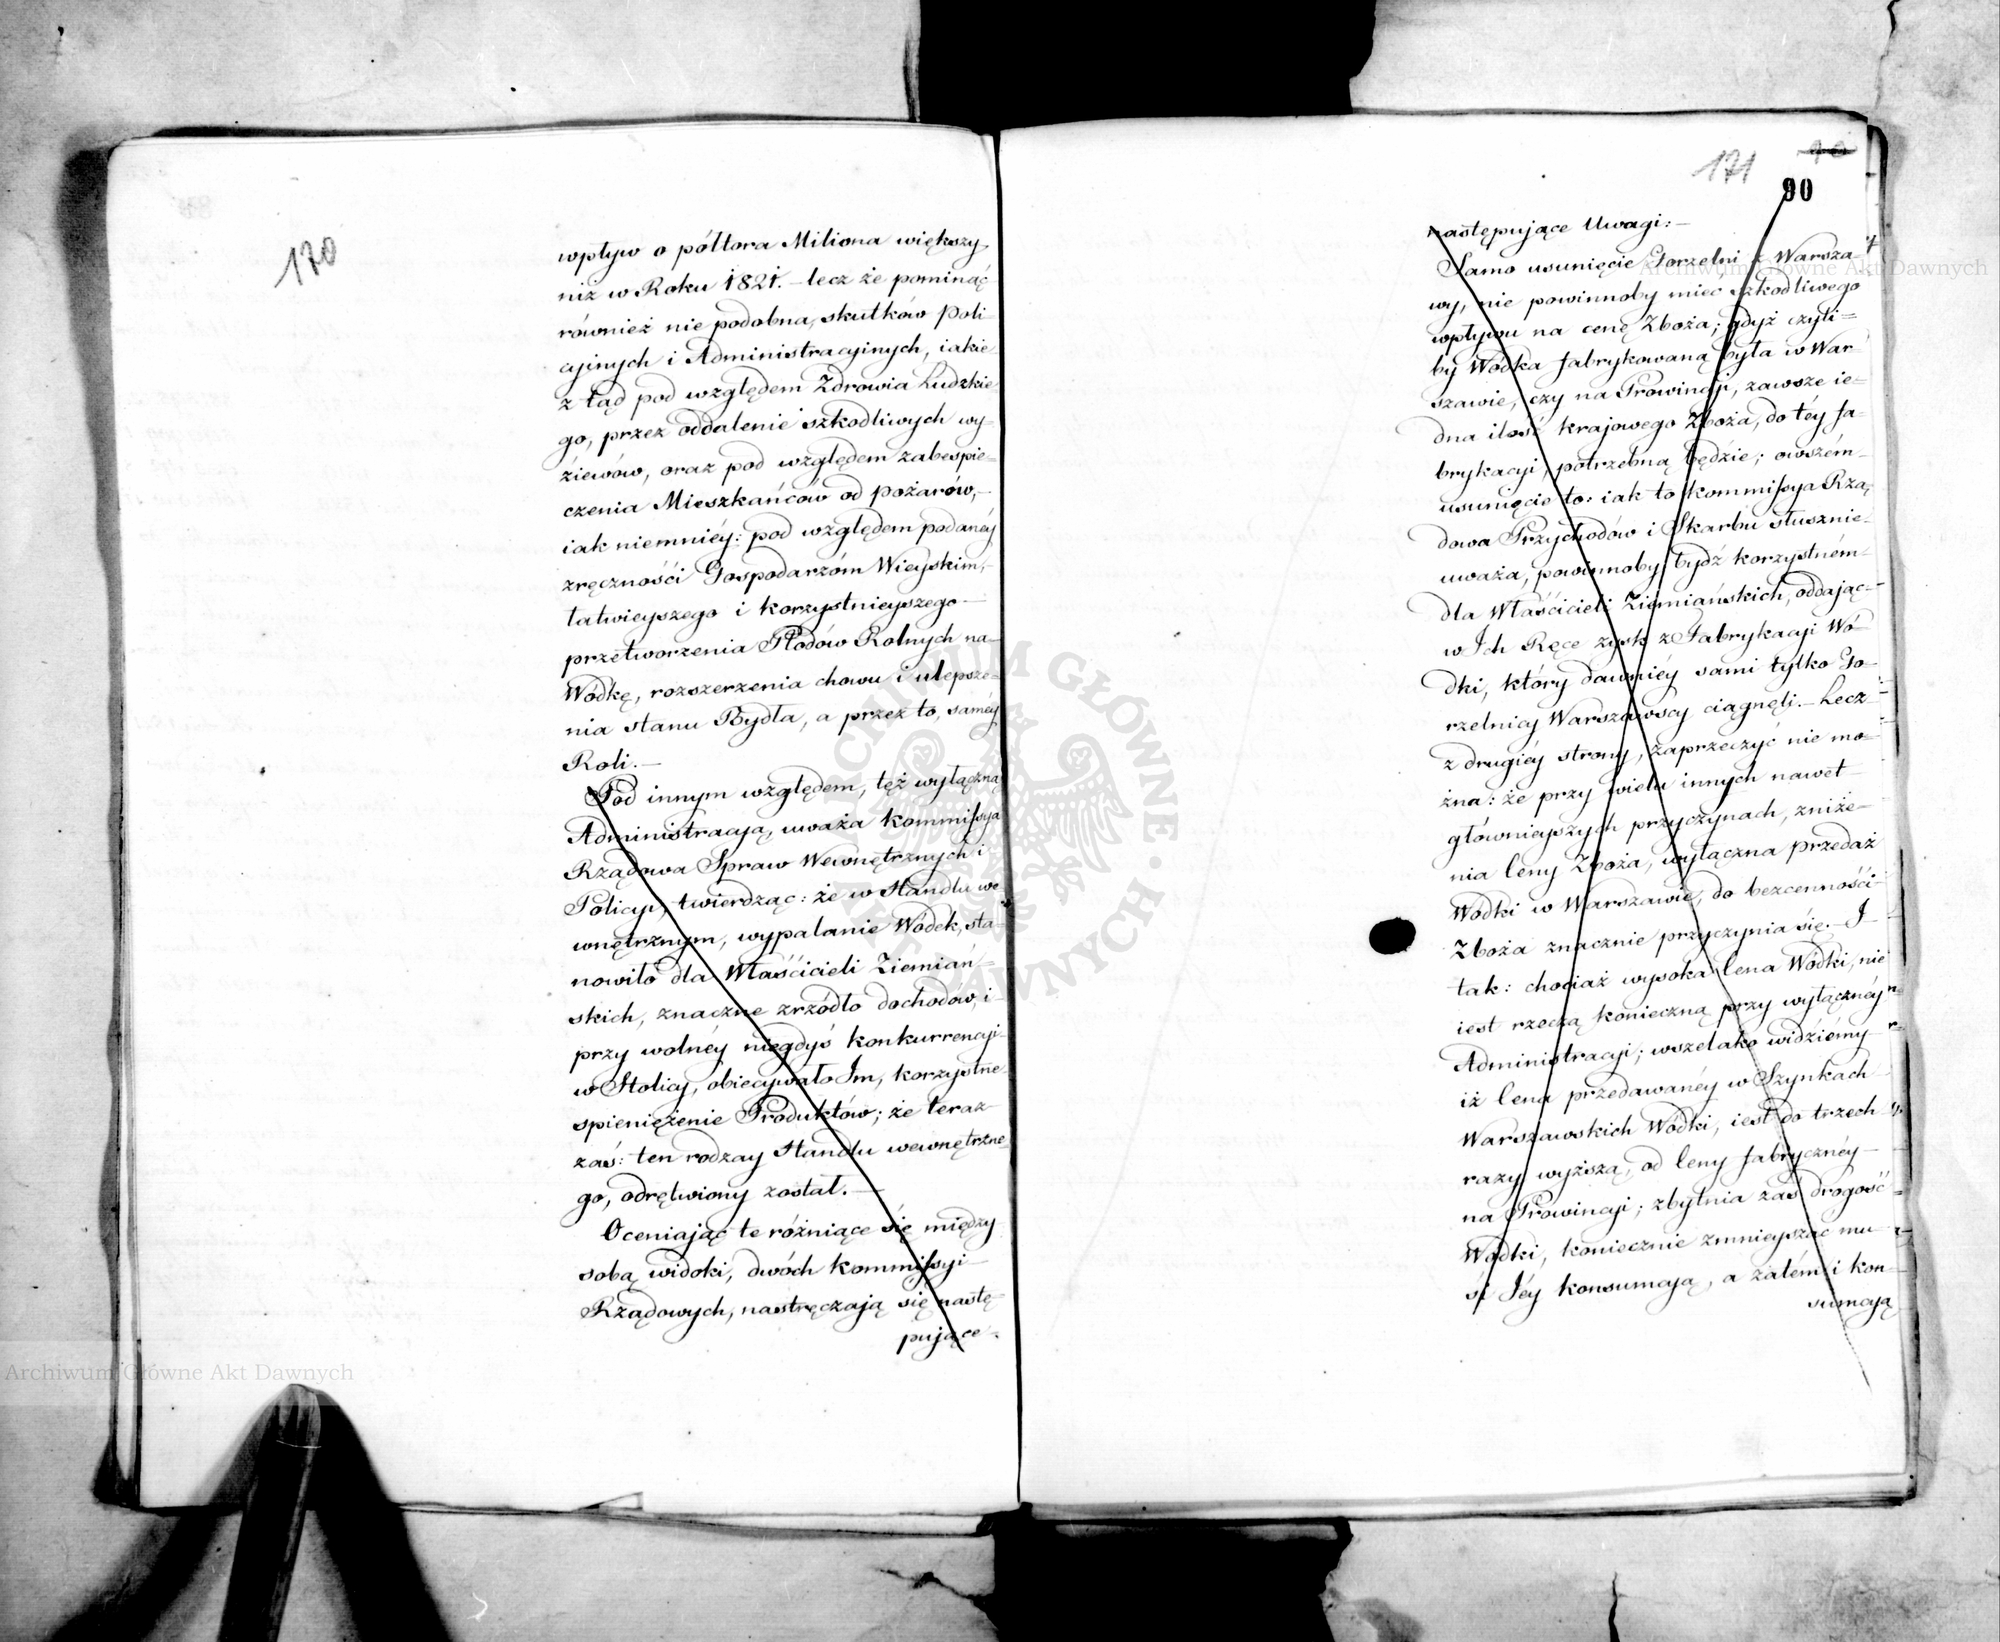 170
wpływ o półtora Miliona większy,
niż w Roku 1821. – lecz że pominąć
również nie podobna, skutków Poli
cyinych i Administracyinych, iakie
z tąd pod względem Zdrowia Ludzkie
go, przez oddalenie szkodliwych wy-
ziewów, oraz pod względem zabespie-
czenia Mieszkańców od pożarów, –
iak niemniéy: pod względem podanéy
zręcznośći Gospodarzóm Wieyskim, –
łatwieyszego i korzystnieyszego –
przetworzenia Płodów Rolnych na
Wódkę, rozszerzenia chowu i ulepsze-
nia stanu Bydła, a przez to, saméy
Roli. –
Pod innym względem, téż wyłączną
Administracyą, uważa Kommissya
Rządowa Spraw Wewnętrznych i
Policyi, twierdząc: że w Handlu we
wnętrznym, wypalanie Wódek, sta-
nowiło dla Właścicieli Ziemiań-
skich, znaczne zrzódło dochodów, i
przy wolnéy niegdyś konkurrencyi
w Stolicy, obiecywało Im, korzystne
spieniężenie Produktów; że teraz
zaś: ten rodzay Handlu wewnętrzne
go, odrętwiony został. –
Oceniaiąc te różniące się między
sobą widoki, dwóch Kommissyi –
Rządowych, nastręczaią się nastę-
puiące –
171
90
następuiące Uwagi: –
Samo usunięcie Gorzelni z Warsza-
wy, nie powinnoby mieć szkodliwego
wpływu na cenę Zboża; gdyż czyli-
by Wódka fabrykowaną była w War-
szawie, czy na Prowincyi, zawsze ie-
dna ilość krajowego Zboża, do téy fa-
brykacyi, potrzebną będzie; owszém –
usunięcie to: iak to Kommissya Rzą-
dowa Przychodów i Skarbu słusznie –
uważa, powinnoby bydź korzystném –
dla Właścicieli Ziemiańskich, oddając –
w Ich Ręce zysk z Fabrykacyi Wó-
dki, który dawniéy sami tylko Go-
rzelnicy Warszawscy ciągnęli. – Lecz
z drugiéy strony, zaprzeczyć nie mo-
żna: że przy wielu innych nawet –
głównieyszych przyczynach, zniże-
nia Ceny Zboża, wyłączna przedaż
Wódki w Warszawie, do bezcennośći
Zboża znacznie przyczynia się. – I
tak: chociaż wysoka Cena Wódki, nie
iest rzeczą konieczną przy wyłącznéy
Administracyi; wszelako widziémy
iż Cena przedawanéy w Szynkach
Warszawskich Wódki, iest do trzech
razy wyższą, od Ceny fabrycznéy –
na Prowincyi; zbytnia zaś drogość
Wódki, koniecznie zmnieyszać mu
śi Jéy konsumcyą, a zatém i kon-
sumcyą